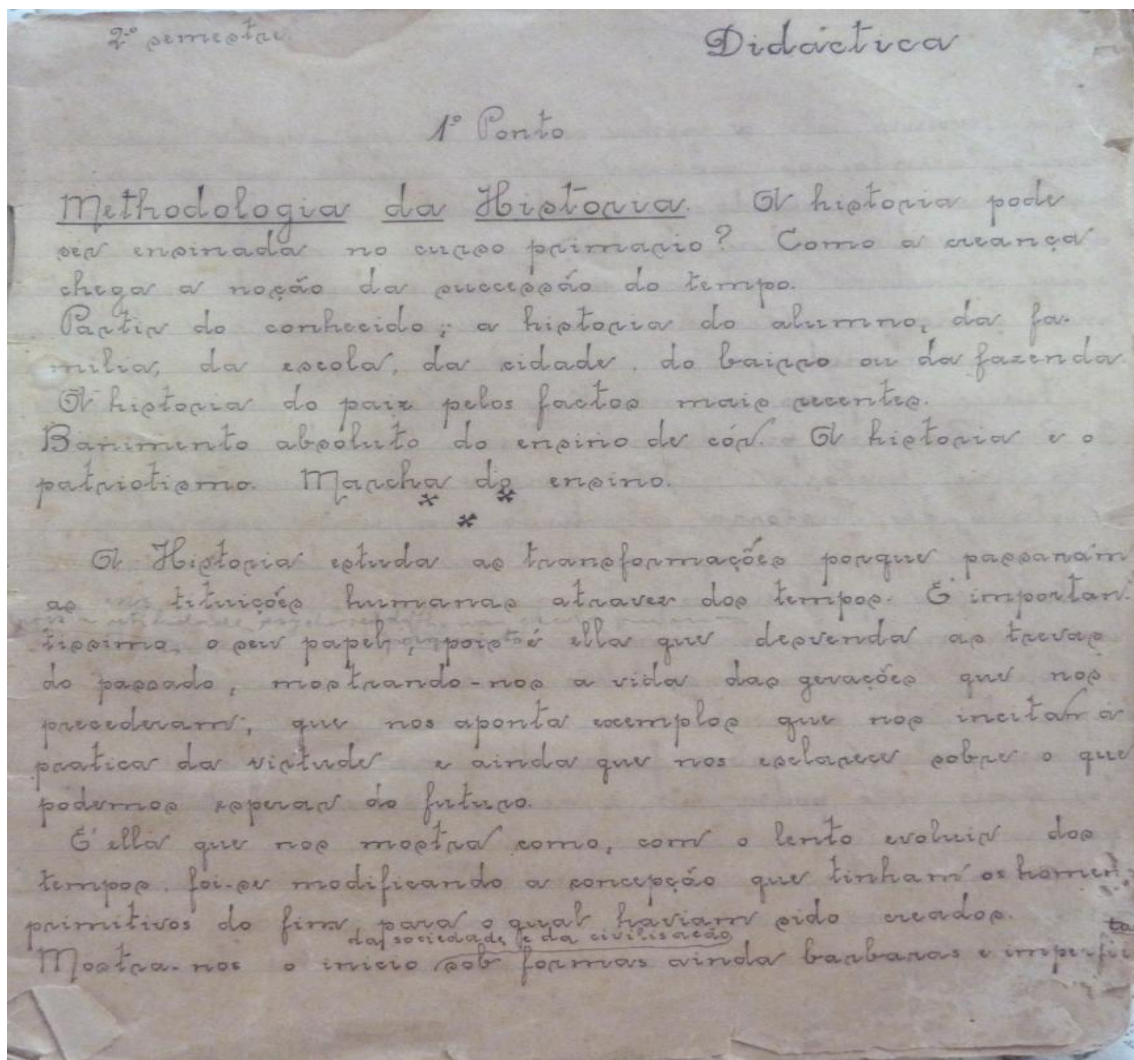 2º semestre
Didáctica
1º Ponto
Methodologia da Historia. A historia pode
ser ensinada no curso primario? Como a creança
chega a noção da successão do tempo.
Partir do conhecido; a historia do alumno, da fa-
milia, da escola, da cidade, do bairro ou da fazenda
A historia do paiz pelos factos mais recentes.
Banimento absoluto do ensino de cór. A historia e o
patriotismo. Marcha do ensino.
A Historia estuda as transformações porque passaram
as tituições humanas atravez dos tempos. É importan-
tissimo, o seu papel, pois é ella que desvenda as trevas
do passado, mostrando-nos a vida das gerações que nos
precederam; que nos aponta exemplos que nos incitam á
pratica da virtude e ainda que nos esclarece sobre o que
podemos esperar do futuro.
É ella que nos mostra como, com o lento evoluir dos
tempos, foi-se modificando a concepção que tinham os homens
primitivos do fim para o qual haviam sido creados.
da sociedade e da civilisação
Mostra-nos o inicio sob formas ainda barbaras e imperfei
ta